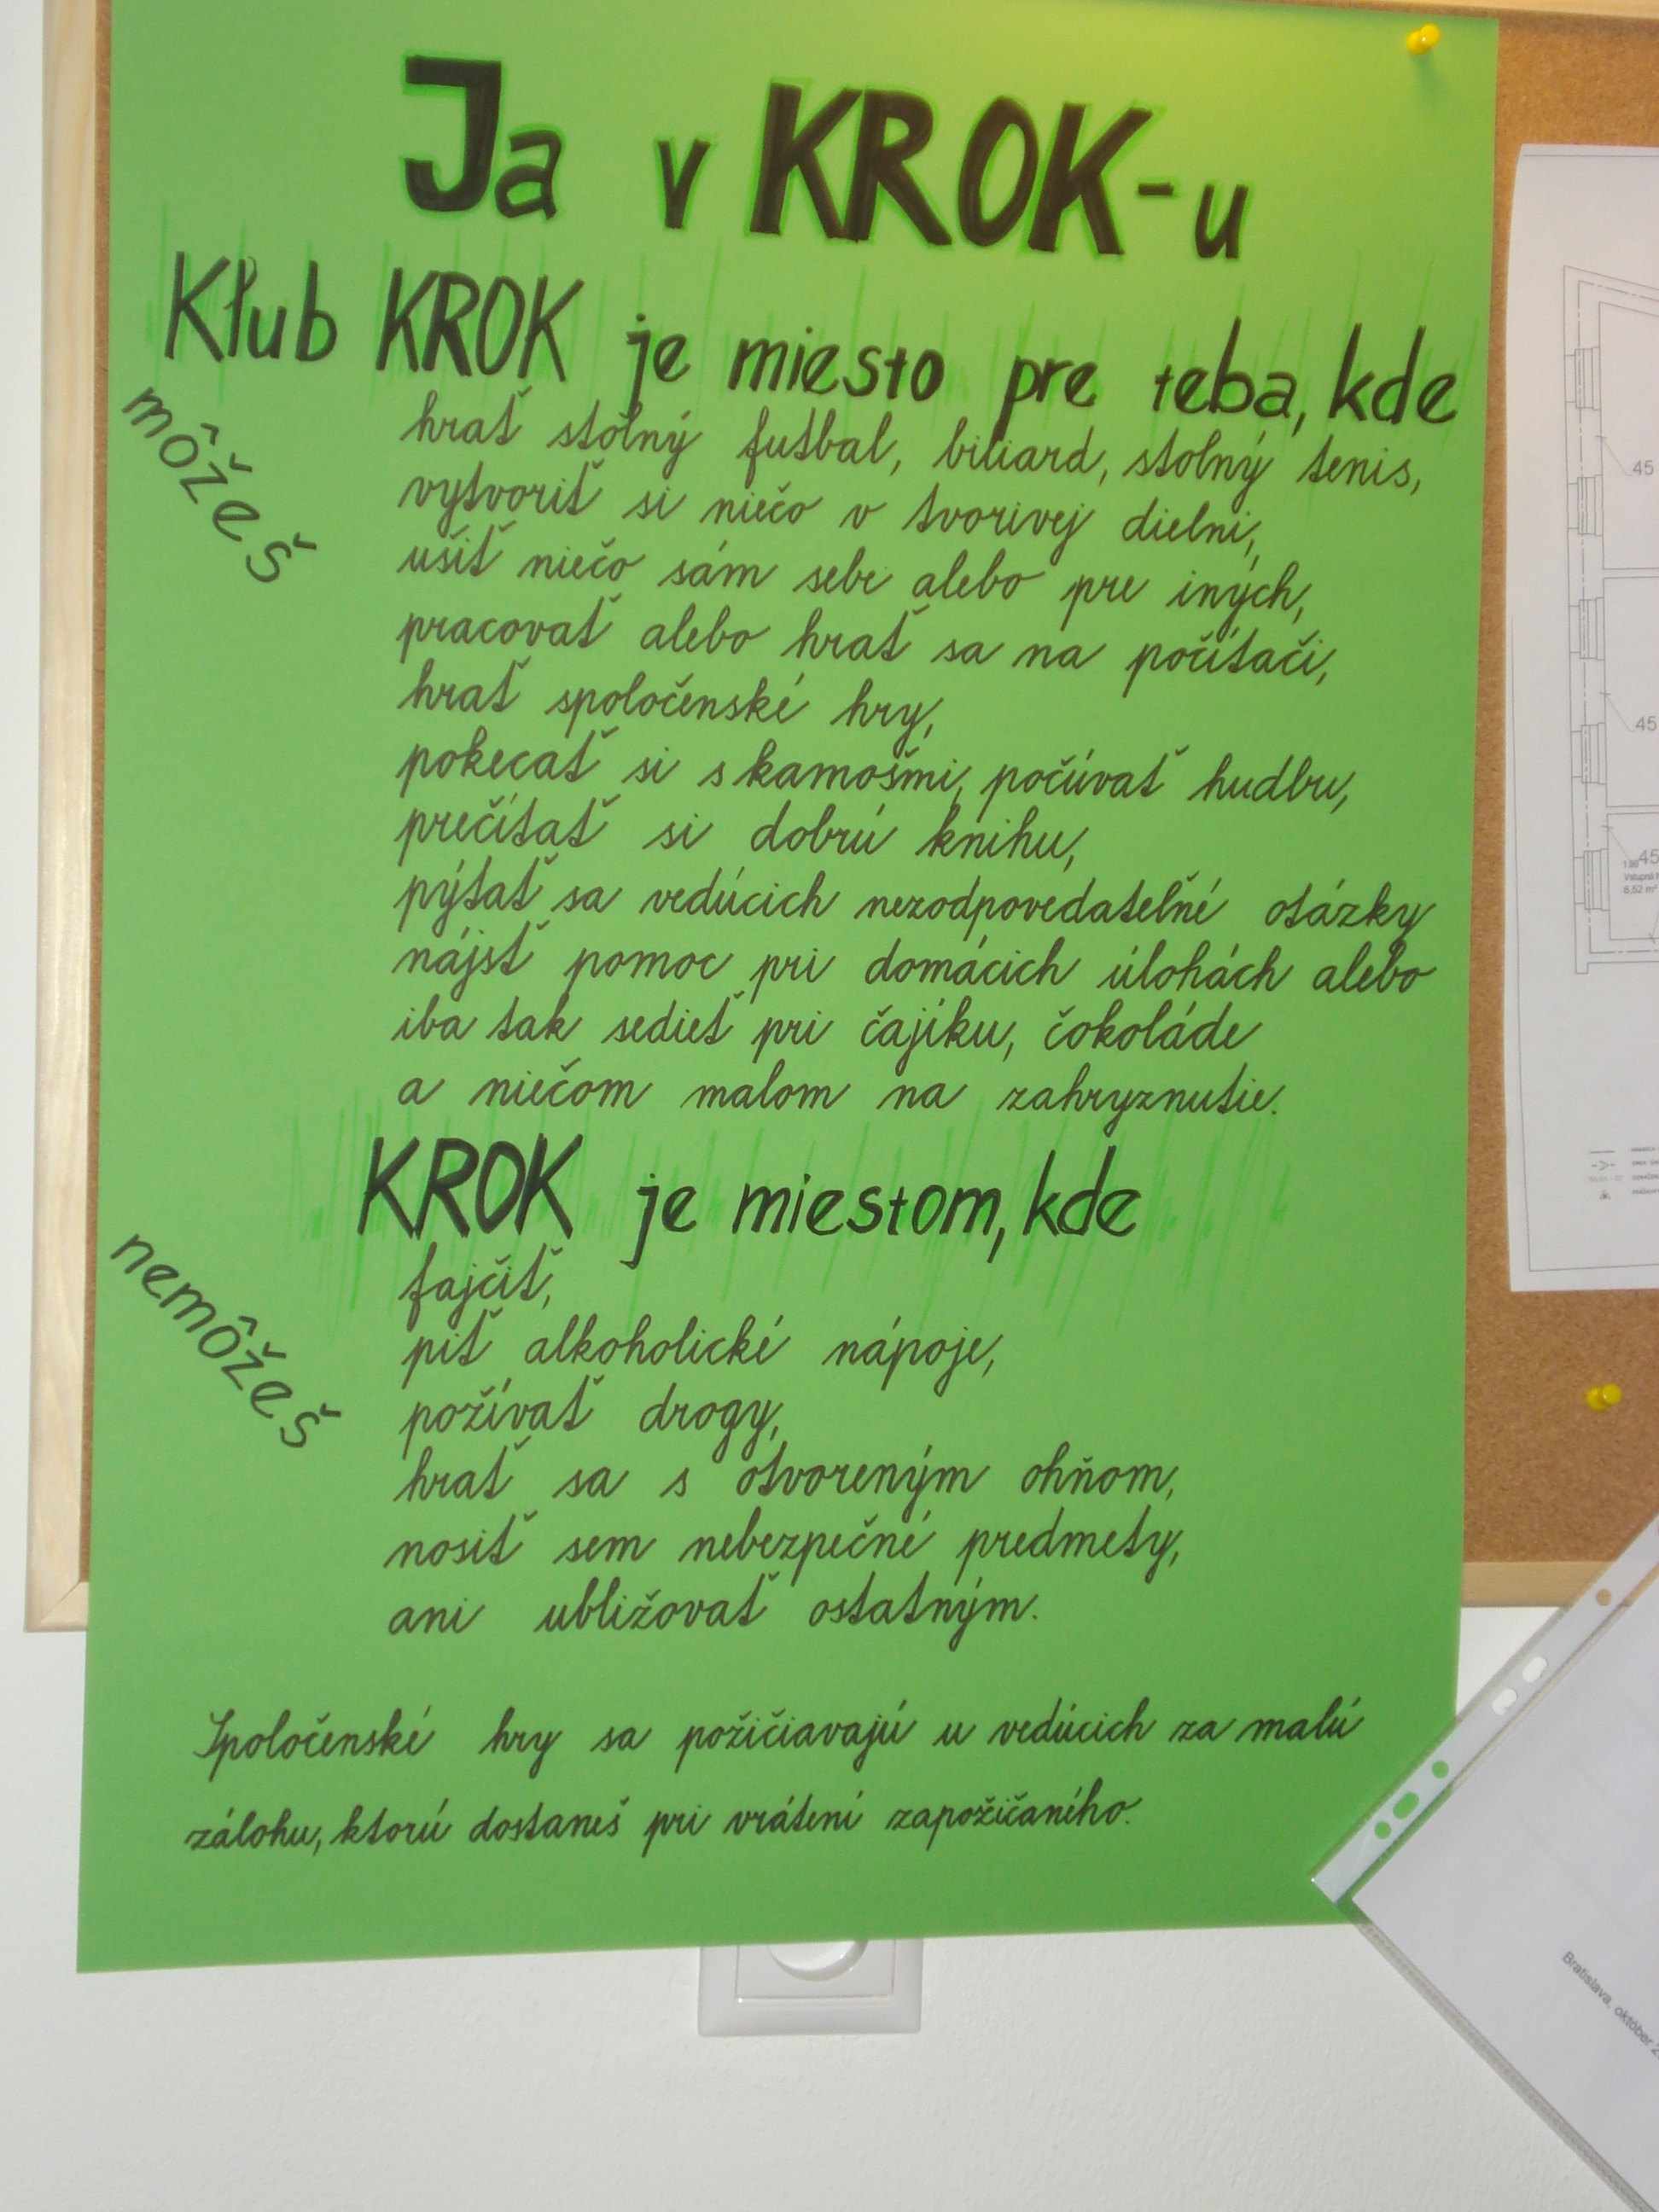 Ja v KROK-u
Klub KROK je miesto pre teba, kde
môžeš
hrať stolný futbal, biliard, stolný tenis,
vytvoriť si niečo v tvorivej dielni,
ušiť niečo sám sebe alebo pre iných,
pracovať alebo hrať sa na počítači,
hrať spoločenské hry,
pokecať si s kamošmi, počúvať hudbu,
prečítať si dobrú knihu,
pýtať sa vedúcich nezodpovedateľné otázky
nájsť pomoc pri domácich úlohách alebo
iba tak sedieť pri čajíku, čokoláde
a niečom malom na zahryznutie.
KROK je miestom, kde
nemôžeš
fajčiť,
piť alkoholické nápoje,
požívať drogy,
hrať sa s otvoreným ohňom,
nosiť sem nebezpečné predmety,
ani ubližovať ostatným.
Spoločenské hry sa požičiavajú u vedúcich za malú
zálohu, ktorú dostaneš pri vrátení zapožičaného.
45
45
45
8,52 m²
Bratislava, október